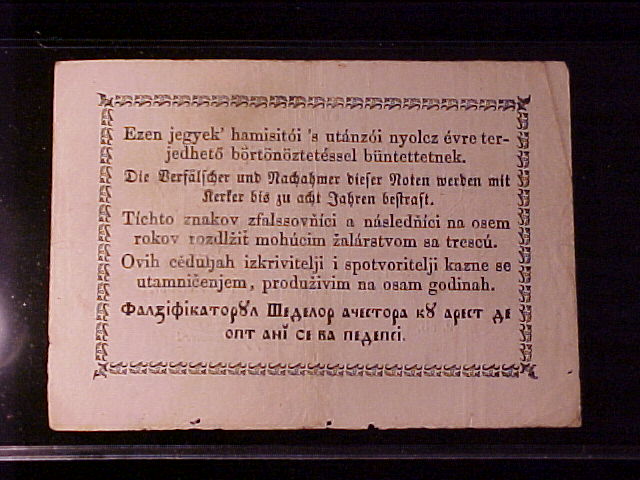 Ezen jegyek' hamisitói 's utánzói nyolcz évre ter-
jedhető börtönöztetéssel büntettetnek.
Die Verfälscher und Nachahmer dieser Noten werden mit
Kerker bis zu acht Jahren bestraft.
Tíchto znakov zfalssovňíci a následňíci na osem
rokov rozdlžiť mohúcim žalárstvom sa trescú.
Ovih céduljah izkrivitelji i spotvoritelji kazne se
utamničenjem, produživim na osam godinah.
Фалꙃіфікаторꙋл Шеделор ачестора кꙋ арест де
опт анĭ се ва педепсі.